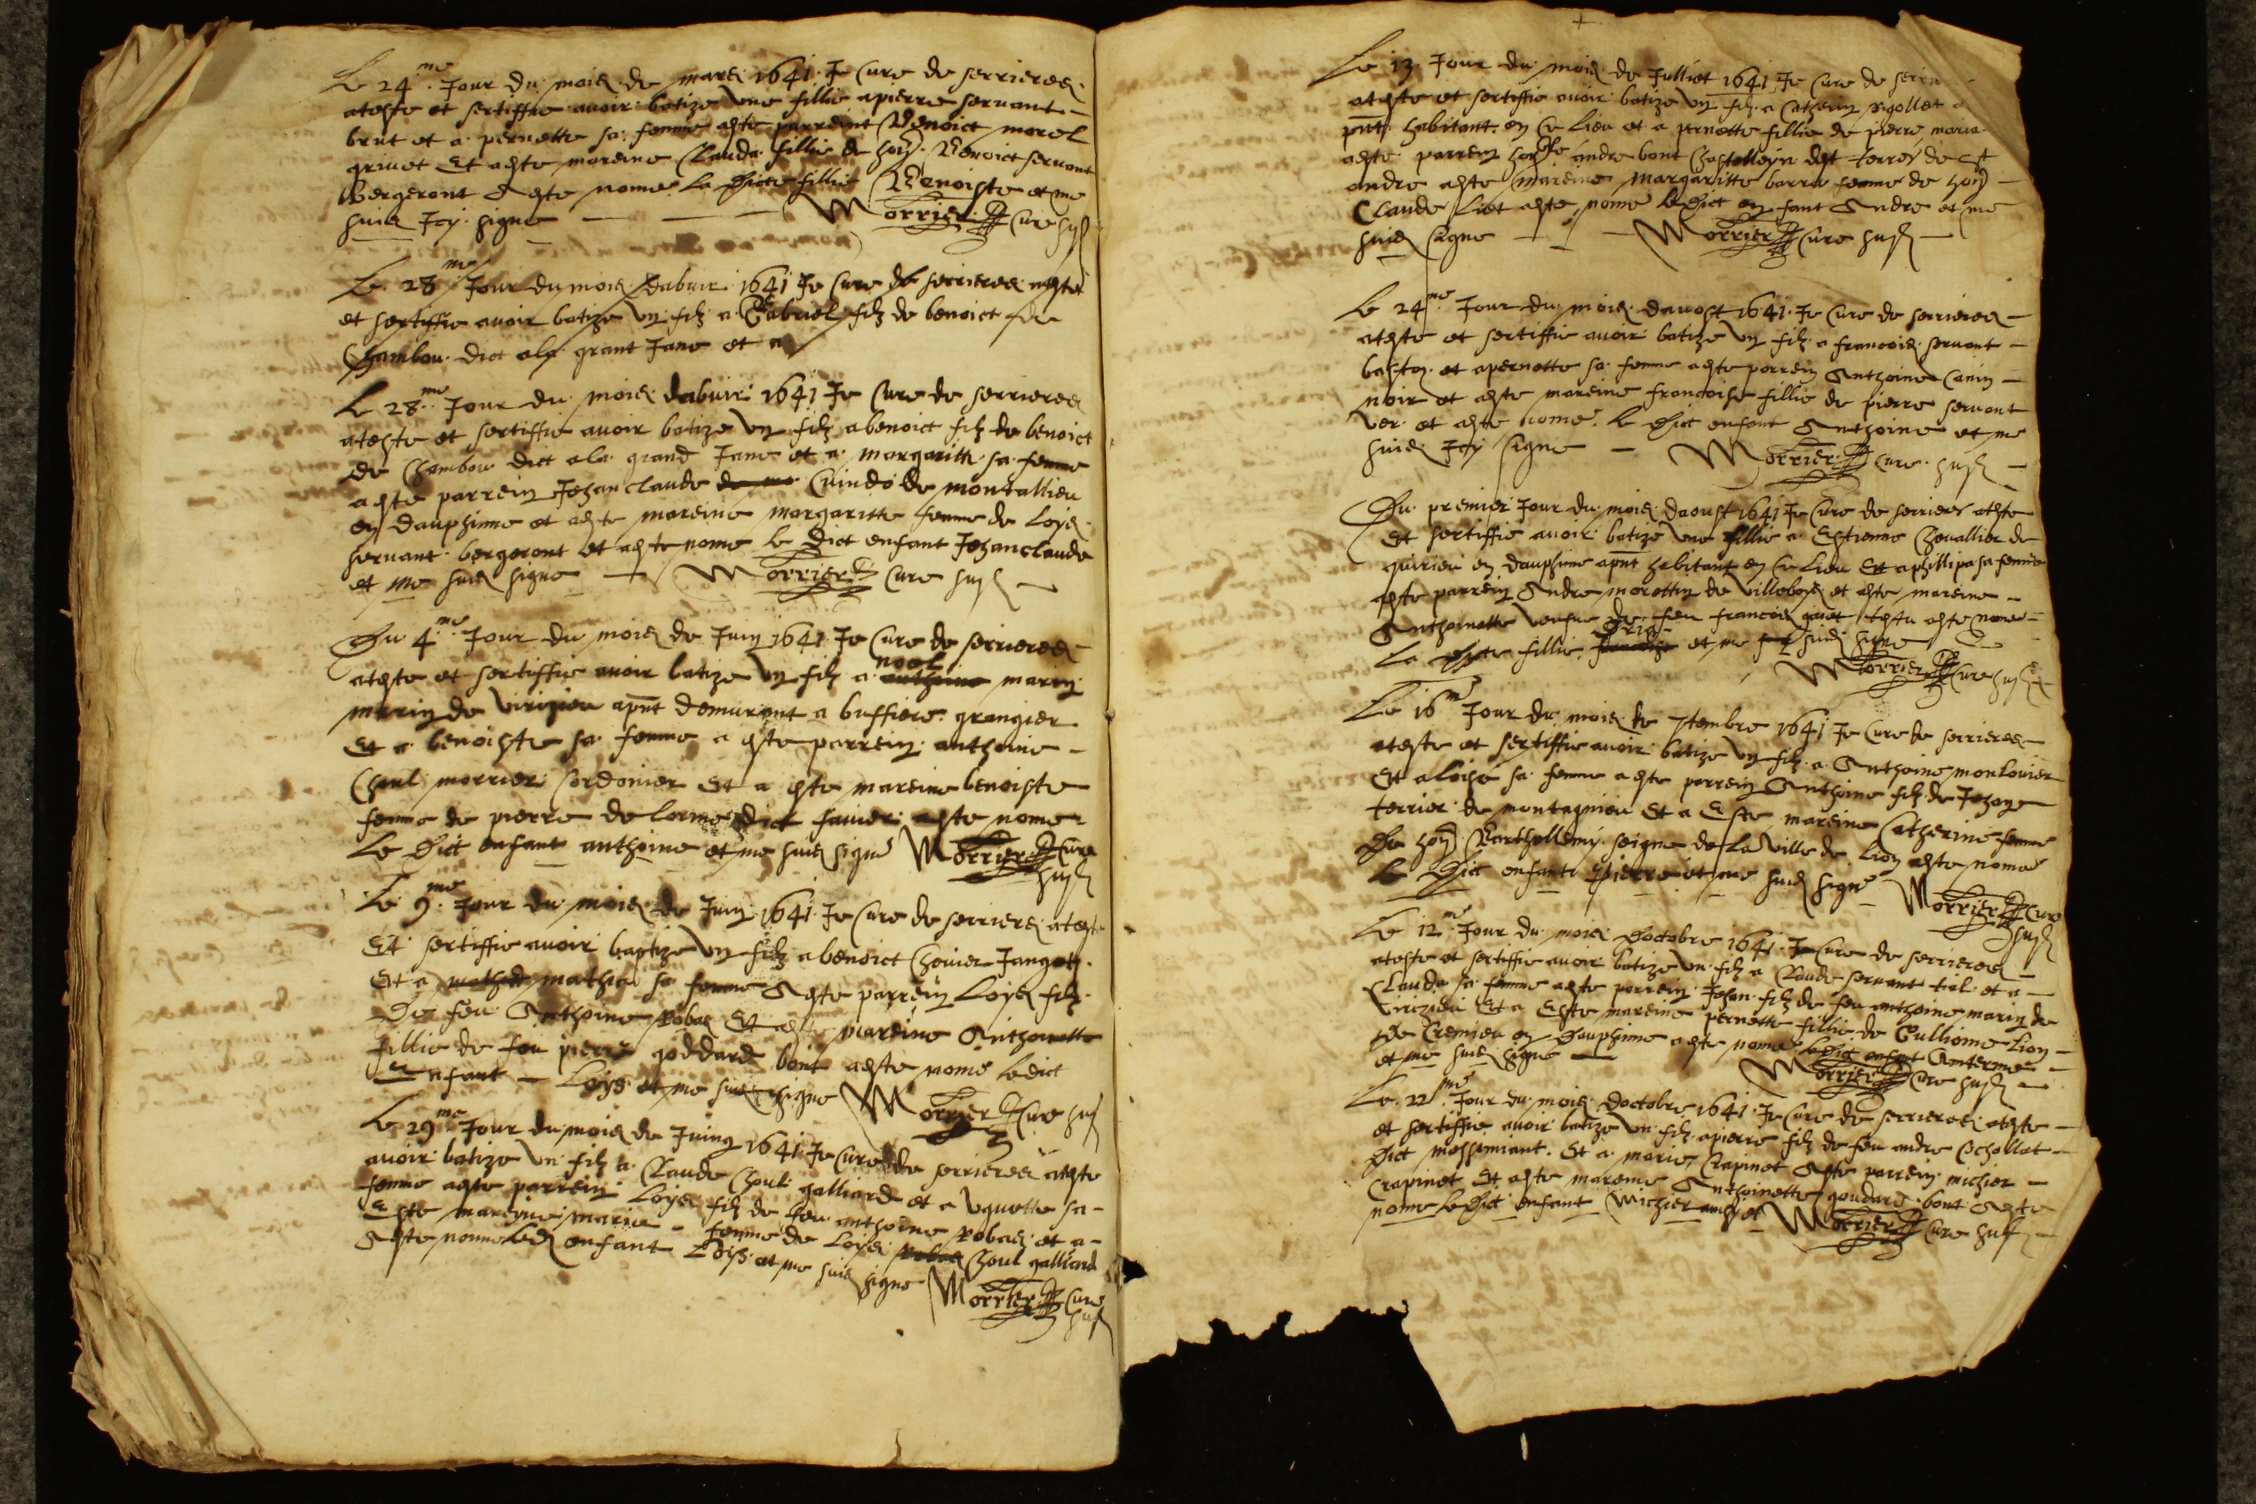 Le 24.me Jour du mois de mars 1641 Je Cure de serrieres
ateste et sertiffie avoir batize une fillie a pierre servant
brut et a pernette sa femme este parreint Benoict morel
grivet Et este mareine Clauda fillie de hon. Benoict servant
Bergeront Este nome la dicte fillie Benoiste et me
suis Jcy signe Morrier Cure susd
Le 28me Jour du mois dabvir 1641 Je Cure de serrieres ateste
et sertiffie avoir batize un filz a Gabriel filz de benoict de
Chambou dict ala grant Jane et a
Le 28.me Jour du mois dabvir 1641 Je Cure de serrieres
ateste et sertiffie avoir batize un filz a benoict filz de benoict
de Chambou dict ala grand Jane et a margaritte sa femme
este parrein Jehan claude de montallieu
en dauphinne et este mareine margaritte femme de Loys
servant bergeront et este nome le dict enfant Jehanclaude
et me suis signe Morrier Cure susd
Du 4.me Jour du mois de Juin 1641 Je Cure de serrieres
ateste et sertiffie avoir batize un filz a noel marin
marin de virizieu apnt demurant a buffiere grangier
Et a benoiste sa femme a este parrein anthoine
Choul morrier cordonier Et a este mareine benoiste
femme de pierre de lorme dict favier este nome
Le dict enfant anthoine et me suis signe Morrier Cure
susd
Le 9.me Jour du mois de Juin 1641 Je Cure de serrieres atest
Et sertiffie avoir baptize un filz a benoict Chovier Jangot
Et a mathia sa femme Este parrein Loys filz
De feu Anthoine Robas Et este mareine Anthonette
fillie de feu pierre goddard bont este nome ledict
Enfant Loys et me suis signe Morrier Cure susd
Le 29me Jour du mois de Juing 1641 Je Cure de serrieres ateste
avoir batize un filz a Claude Choul galliard et a uguette sa
femme este parrein Loys filz de feu anthoine Robas et a
Este mareine marie femme de Loys Choul galliard
Este nomme led enfant Loys et me suis signe Morrier Cure
susd
Le 13 Jour du mois de Julliet 1641 Je Cure de serri
ateste et sertiffie avoir batize un filz a Catherin rigollet a
pnt habitant en ce Lieu et a pernette fillie de pierre maria
este parrein andre bont Chastelleyn des terres de st
andre este mareine Margaritte barra femme de hon
Claude Liot este nome le dict en fant Andre et me
suis signe Morrier Cure susd
Le 24me Jour du mois davost 1641 Je Cure de serrieres
ateste et sertiffie avoir batize un filz a francois servant
baston et a pernette sa femme este parrein Anthoine Canin
noir et este mareine francoise fillie de pierre servant
ver et este nome le dict enfant Anthoine et me
suis Jcy signe Morrier Cure susd
Du premier Jour du mois daoust 1641 Je Cure de serrieres ateste
Et sertiffie avoir batize une fillie a Estienne Chevallier de
quirieu en dauphine apnt habitant en ce Lieu Et a phillipa sa femme
este parrein Andre morettin de villeboys et este mareine
Anthoinette veufve de feu francois este nome
La dicte fillie et me suis signe
Morrier Cure susd
Le 16me Jour du mois de 7tembre 1641 Je Cure de serrieres
ateste et sertiffie avoir batize un filz a Anthoine monlovier
Et a loise sa femme a este parrein Anthoine filz de Jehan
terrier de montagnieu Et a Este mareine Catherine femme
De hon Barthellemy seigne de la ville de Lion este nome
Le dict enfant pierre et me suis signe Morrier Cure
susd
Le 12me Jour du mois doctobre 1641 Je Cure de serrieres
ateste et sertiffie avoir batize un filz a Claude servant tial et a
Clauda sa femme este parrein Jehan filz de feu anthoine marin de
virizieu Et a Este mareine pernette fillie de Gulliome Lion
de Cremieu en Dauphine este nome le dict enfant Anterme
et me suis signe Morrier Cure susd
Le 22me Jour du mois doctobre 1641 Je Cure de serrieres ateste
et sertiffie avoir batize un filz a pierre filz de feu andre Cochollat
dict messimiant Et a marie Crapinet Este parrein michier
Crapinet Et este mareine Anthoinette goudard bont Este
nome le dict enfant Michier et Morrier Cure susd